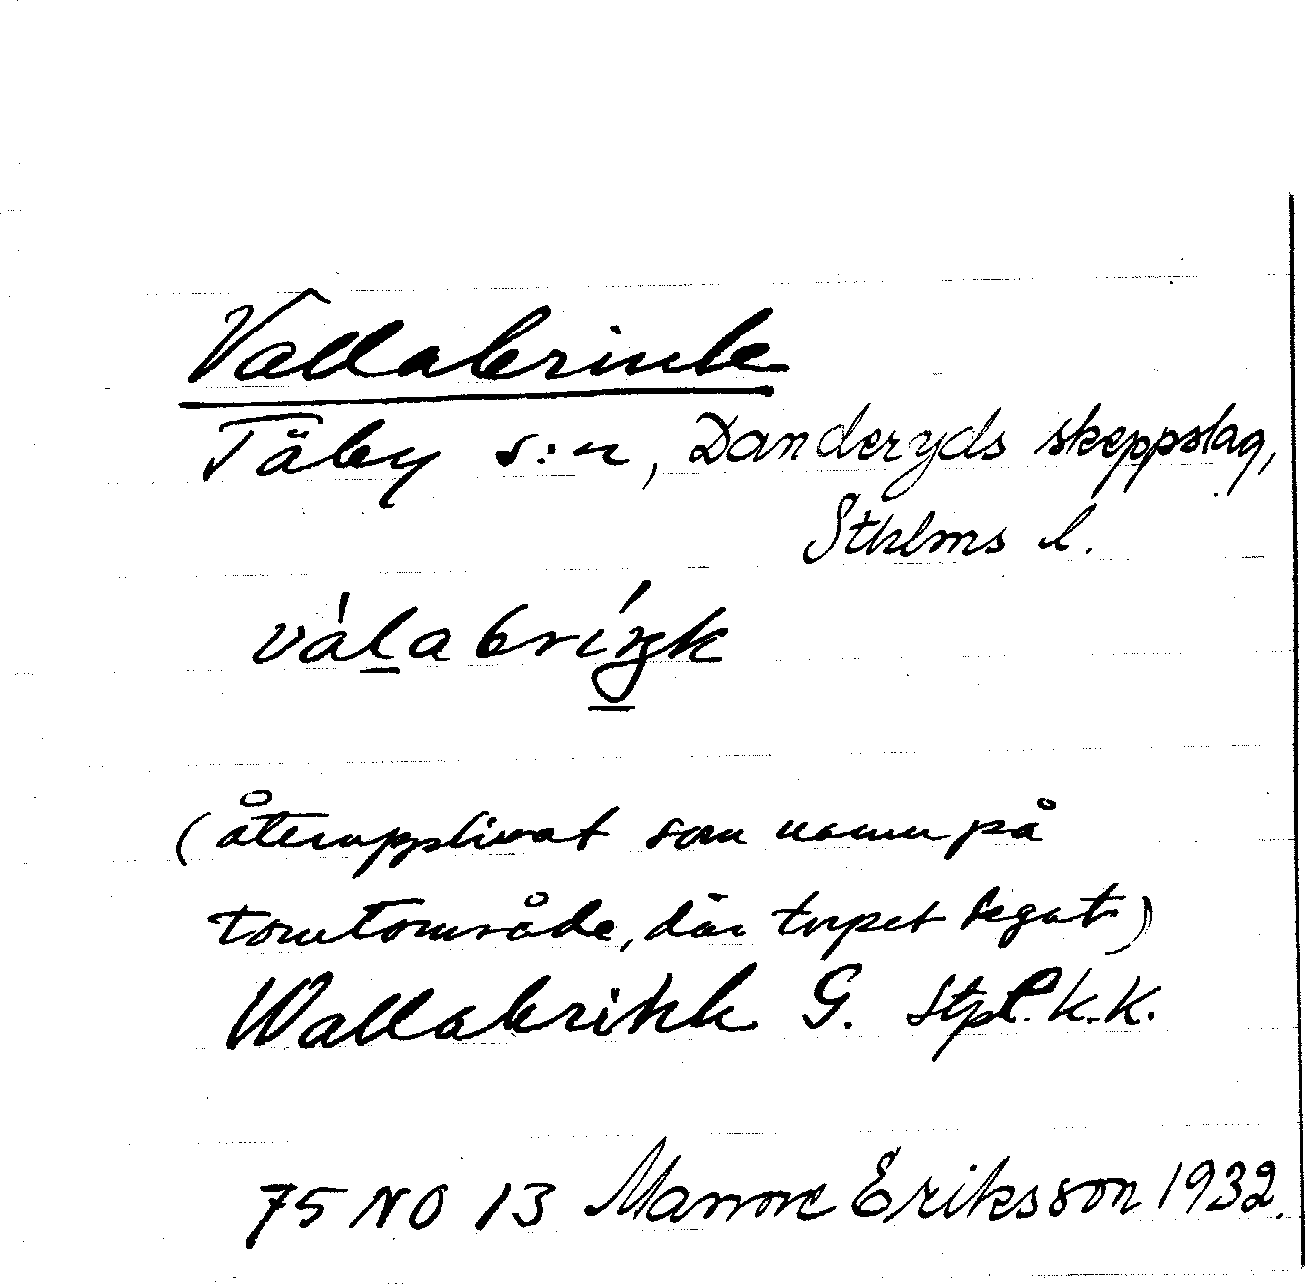 Vallabrink
Täby s:n, Danderyds skeppslag,
Sthlms l.
válabríŋk
(återupplivat som namn på
tomtområde, där torpet legat)
Wallabrink G. Stpl. k.k.
75 NO 13 Manne Eriksson 1932.